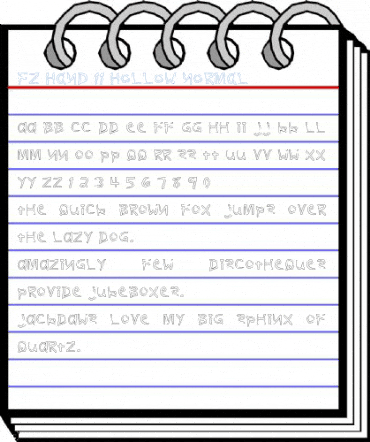 FZ HAND 11 HOLLOW NORMAL
aa BB CC DD ee FF GG HH II JJ KK LL
MM NN OO PP QQ RR SS tt UU VV WW XX
YY ZZ 1 2 3 4 5 6 7 8 9 0
tHe QUICK BROWN FOX JUMPS OVeR
tHe LaZY DOG.
aMaZINGLY FeW DISCOtHeQUeS
PROVIDe JUKeBOXeS.
JaCKDaWS LOVe MY BIG SPHINX OF
QUaRtZ.